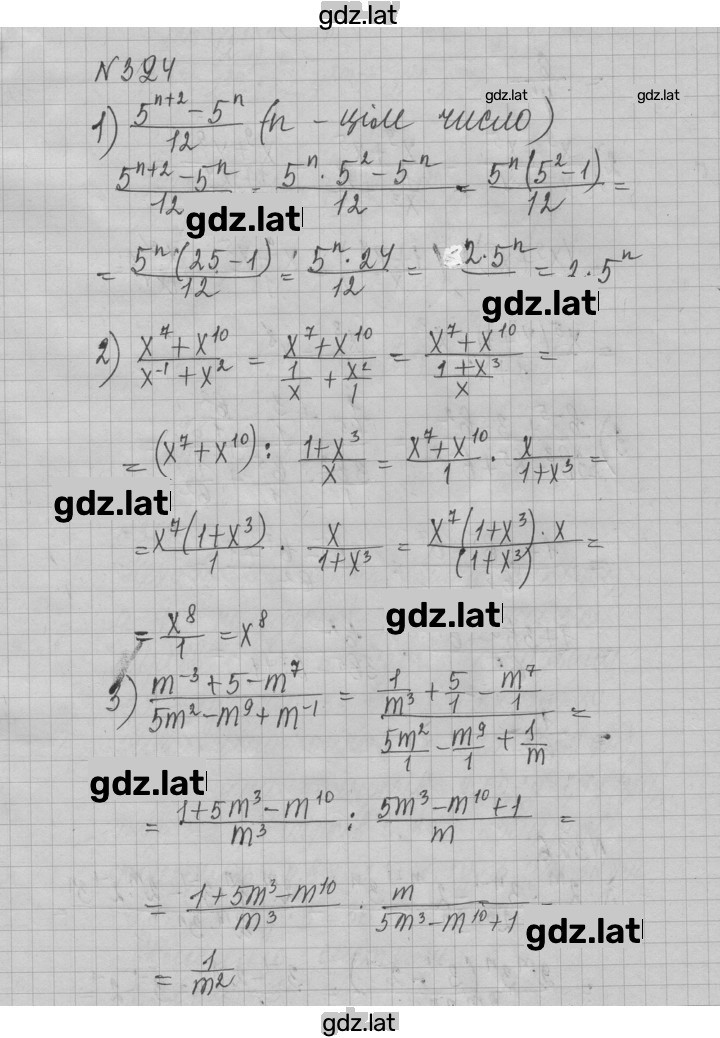 gdz.lat
N 324
gdz.lat gdz.lat
1) (5^(n+2) − 5^n)/12 (n − ціле число)
(5^(n+2) − 5^n)/12 = (5^n · 5^2 − 5^n)/12 = (5^n(5^2 − 1))/12 =
gdz.lat
= (5^n · (25 − 1))/12 = (5^n · 24)/12 = 2 · 5^n = 2 · 5^n
gdz.lat
2) (x^7 + x^10)/(x^-1 + x^2) = (x^7 + x^10)/(1/x + x^2/1) = (x^7 + x^10)/((1 + x^3)/x) =
= (x^7 + x^10) : (1 + x^3)/x = (x^7 + x^10)/1 · x/(1 + x^3) =
gdz.lat
= (x^7(1 + x^3))/1 · x/(1 + x^3) = (x^7(1 + x^3) · x)/((1 + x^3)) =
gdz.lat
= x^8/1 = x^8
3) (m^-3 + 5 − m^7)/(5m^2 − m^9 + m^-1) = (1/m^3 + 5/1 − m^7/1)/(5m^2/1 − m^9/1 + 1/m) =
gdz.lat
= (1 + 5m^3 − m^10)/m^3 : (5m^3 − m^10 + 1)/m =
= (1 + 5m^3 − m^10)/m^3 · m/(5m^3 − m^10 + 1) =
gdz.lat
= 1/m^2
gdz.lat